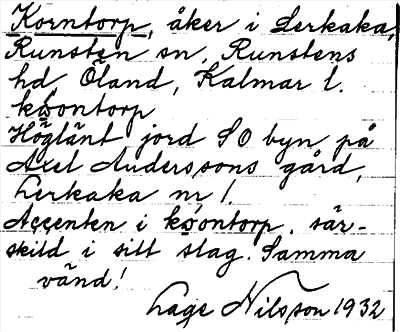 Korntorp, åker i Lerkaka,
Runsten sn, Runstens
hd, Öland, Kalmar l.
koontorp
Höglänt jord SO byn på
Axel Anderssons gård,
Lerkaka nr 1.
Accenten i koontorp, sär-
skild i sitt slag. Samma
vänd!
Lage Nilsson 1932